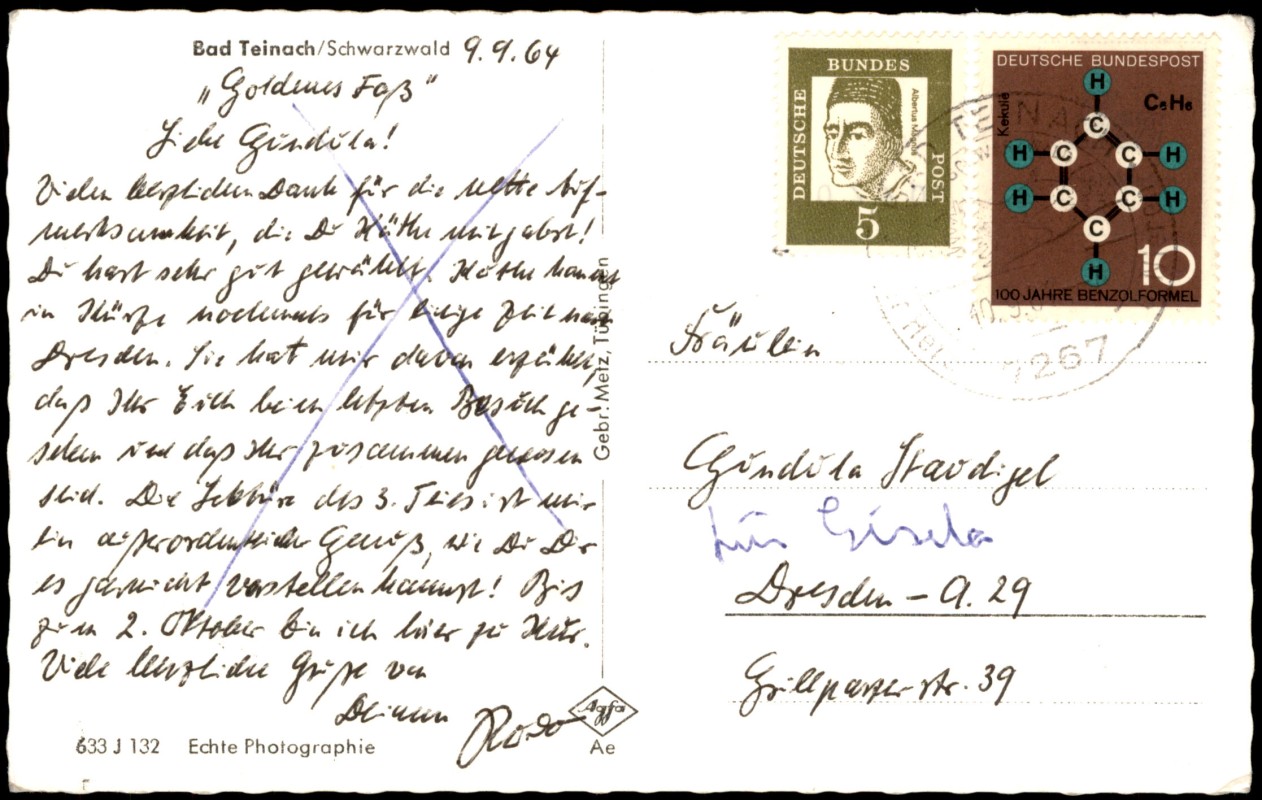 Bad Teinach/Schwarzwald 9.9.64
„Goldenes Faß"
Liebe Gundula!
Vielen herzlichen Dank für die nette Auf-
merksamkeit, die Du Käthe mitgabst!
Du hast sehr gut gewählt. Käthe kommt
in Kürze nochmals für einige Zeit nach
Dresden. Sie hat mir davon erzählt,
daß Ihr Euch beim letzten Besuch ge-
sehen und daß Ihr zusammen gewesen
seid. Die Lektüre des 3. ist mir
ein außerordentlicher Genuß, wie Du Dir
es garnicht vorstellen kannst! Bis
zum 2. Oktober bin ich hier zu Kur.
Viele herzliche Grüße von
Deinem Rodo
633 J 132 Echte Photographie
Gebr. Metz, Tübingen
Agfa
Ae
DEUTSCHE BUNDESPOST
5
Albertus Magnus
DEUTSCHE BUNDESPOST
Kekulé
C₆H₆
H
C
H C C H
H C C H
C
H
10
100 JAHRE BENZOLFORMEL
TEINACH
7267
Fräulein
Gundula Staudigel
für Gisela
Dresden - A. 29
Grillparzerstr. 39